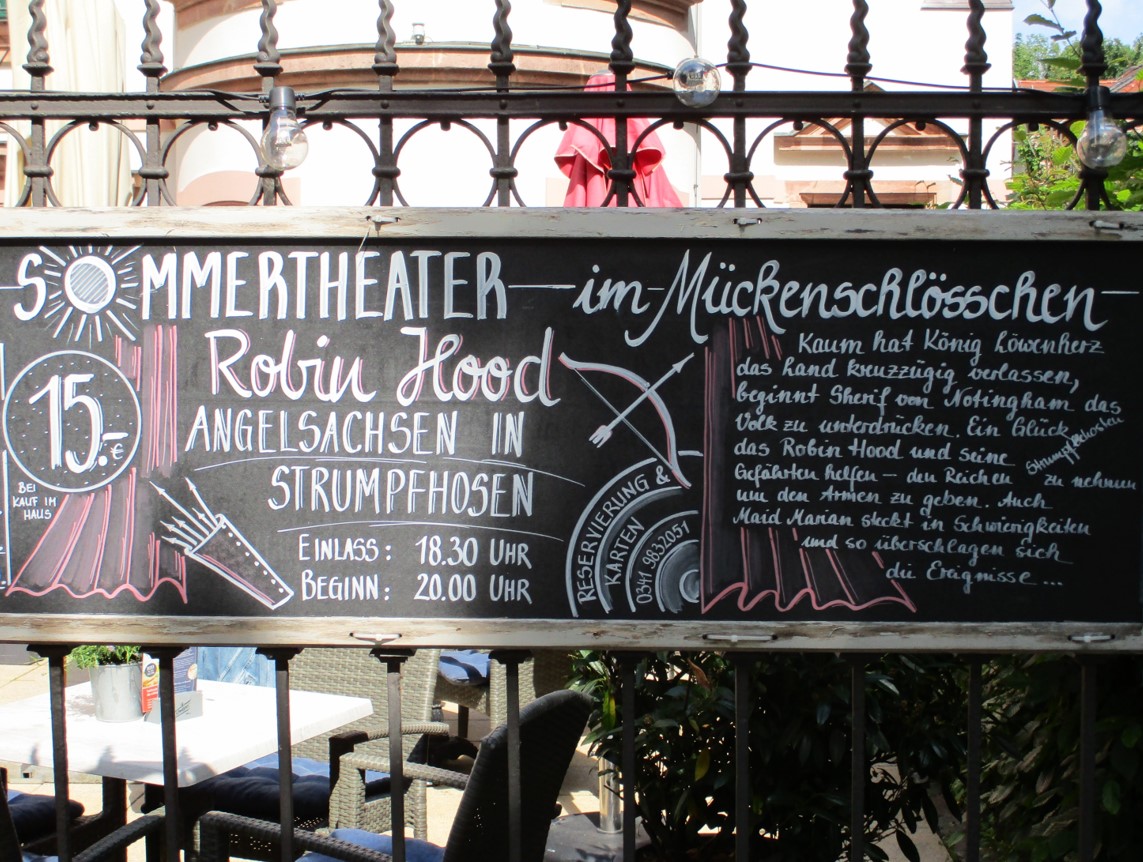 SOMMERTHEATER im Mückenschlösschen
15.- €
BEI
KAUF IM
HAUS
Robin Hood
ANGELSACHSEN IN
STRUMPFHOSEN
EINLASS: 18.30 UHR
BEGINN: 20.00 UHR
RESERVIERUNG &
KARTEN
0341 9832051
Kaum hat König Löwenherz
das Land kreuzzügig verlassen,
beginnt Sherif von Notingham das
Volk zu unterdrücken. Ein Glück
das Robin Hood und seine
Gefährten helfen – den Reichen zu nehmen
um den Armen zu geben. Auch
Maid Marian steckt in Schwierigkeiten
und so überschlagen sich
die Ereignisse ...